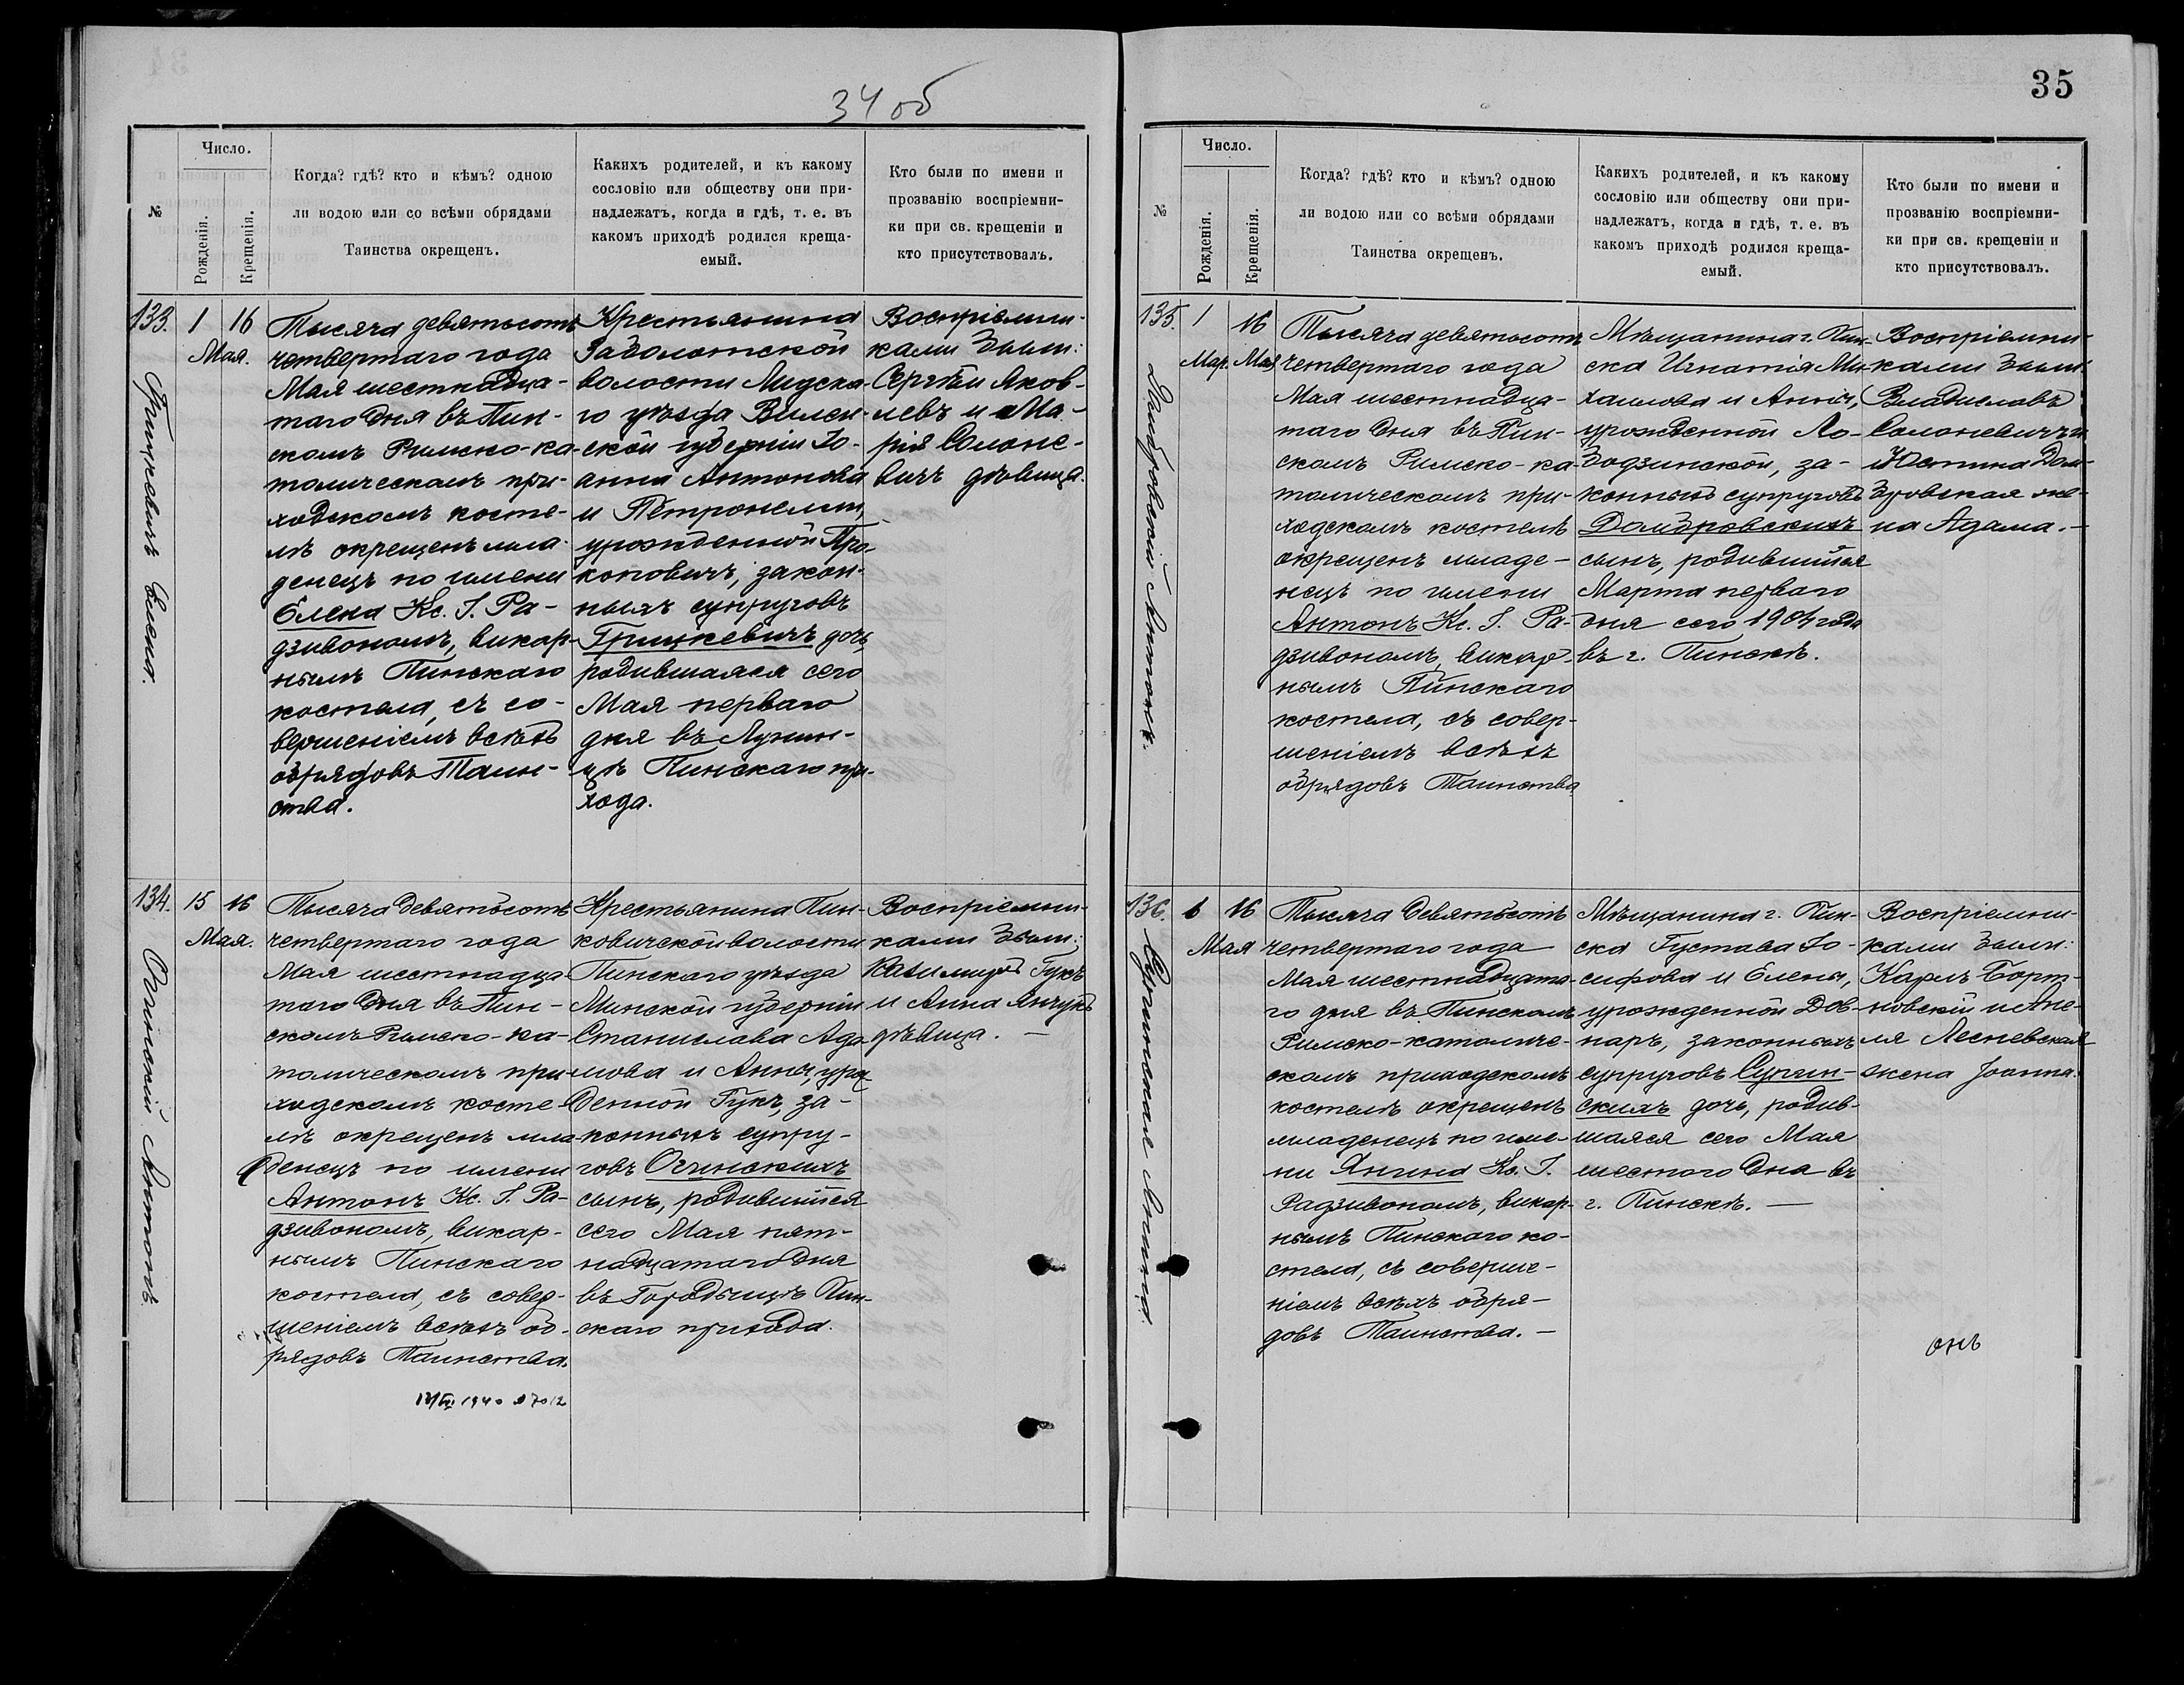 34 об
Число.
№
Рожденія.
Крещенія.
Когда? гдѣ? кто и кѣмъ? одною
ли водою или со всѣми обрядами
Таинства окрещенъ.
Какихъ родителей, и къ какому
сословію или обществу они при-
надлежатъ, когда и гдѣ, т. е. въ
какомъ приходѣ родился креща-
емый.
Кто были по имени и
прозванію воспріемни-
ки при св. крещеніи и
кто присутствовалъ.
133.
1
16
Мая.
Грицкевичъ Елена.
Тысяча девятьсотъ
четвертаго года
Мая шестнадца-
таго дня въ Пин-
скомъ Римско-ка-
толическомъ при-
ходскомъ косте-
лѣ окрещенъ мла-
денецъ по имени
Елена Кс. І. Ра-
дзивономъ, викар-
нымъ Пинскаго
костела, съ со-
вершеніемъ всѣхъ
обрядовъ Таин-
ства.
Крестьянина
Заболотской
волости Лидска-
го уѣзда Вилен-
ской губерніи Іо-
анна Антонова
и Петронели,
урожденной Про-
коповичъ, закон-
ныхъ супруговъ
Грицкевичъ дочь,
родившаяся сего
Мая перваго
дня въ Лунин-
цѣ Пинскаго при-
хода.
Воспріемни-
ками были:
Сергѣй Яков-
левъ и Ма-
рія Солоне-
вичъ дѣвица.
134.
15
16
Мая.
Огинскій Антонъ.
Тысяча девятьсотъ
четвертаго года
Мая шестнадца-
таго дня въ Пин-
скомъ Римско-ка-
толическомъ при-
ходскомъ косте-
лѣ окрещенъ мла-
денецъ по имени
Антонъ Кс. І. Ра-
дзивономъ, викар-
нымъ Пинскаго
костела, съ совер-
шеніемъ всѣхъ об-
рядовъ Таинства.
1940
Крестьянина Пин-
ковичской волости
Пинскаго уѣзда
Минской губерніи
Станислава Ада-
мова и Анны, урож-
денной Гукъ, за-
конныхъ супру-
говъ Огинскихъ
сынъ, родившійся
сего Мая пят-
надцатаго дня
въ Городищѣ Пин-
скаго прихода.
Воспріемни-
ками были:
Казимиръ Гукъ
и Анна Янчукъ
дѣвица. —
35
Число.
№
Рожденія.
Крещенія.
Когда? гдѣ? кто и кѣмъ? одною
ли водою или со всѣми обрядами
Таинства окрещенъ.
Какихъ родителей, и къ какому
сословію или обществу они при-
надлежатъ, когда и гдѣ, т. е. въ
какомъ приходѣ родился креща-
емый.
Кто были по имени и
прозванію воспріемни-
ки при св. крещеніи и
кто присутствовалъ.
135.
1
16
Мар.
Мая
Домбровскій Антонъ.
Тысяча девятьсотъ
четвертаго года
Мая шестнадца-
таго дня въ Пин-
скомъ Римско-ка-
толическомъ при-
ходскомъ костелѣ
окрещенъ младе-
нецъ по имени
Антонъ Кс. І. Ра-
дзивономъ, викар-
нымъ Пинскаго
костела, съ совер-
шеніемъ всѣхъ
обрядовъ Таинства.
Мѣщанина г. Пин-
ска Игнатія Ми-
хаилова и Анны,
урожденной Ло-
бодзинской, за-
конныхъ супруговъ
Домбровскихъ
сынъ, родившійся
Марта перваго
дня сего 1904 года
въ г. Пинскѣ.
Воспріемни-
ками были:
Владиславъ
Солоневичъ и
Юстина Дом-
бровская же-
на Адама. —
136.
6
16
Мая
Сунгинская Янина.
Тысяча девятьсотъ
четвертаго года
Мая шестнадцата-
го дня въ Пинскомъ
Римско-католиче-
скомъ приходскомъ
костелѣ окрещенъ
младенецъ по име-
ни Янина Кс. І.
Радзивономъ, викар-
нымъ Пинскаго ко-
стела, съ соверше-
ніемъ всѣхъ обря-
довъ Таинства. —
Мѣщанина г. Пин-
ска Густава Іо-
сифова и Елены,
урожденной Дов-
наръ, законныхъ
супруговъ Сунгин-
скихъ дочь, родив-
шаяся сего Мая
шестого дня въ
г. Пинскѣ. —
Воспріемни-
ками были:
Карлъ Борт-
новскій и Ане-
ля Лесневская
жена Іоанна.